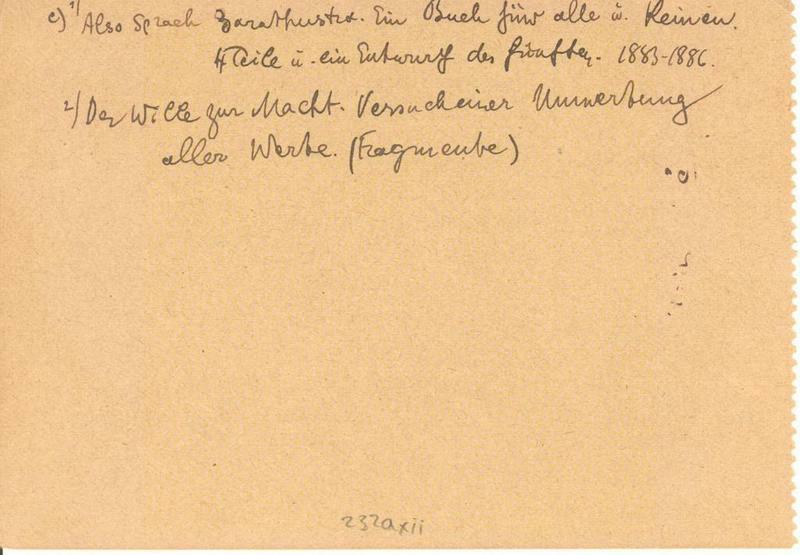 c) 1) Also Sprach Zarathustra. Ein Buch für alle u. Keinen.
4 Teile u. ein Entwurf des fünften. 1883-1886.
2) Der Wille zur Macht. Versuch einer Umwertung
aller Werte. (Fragmente)
232axii